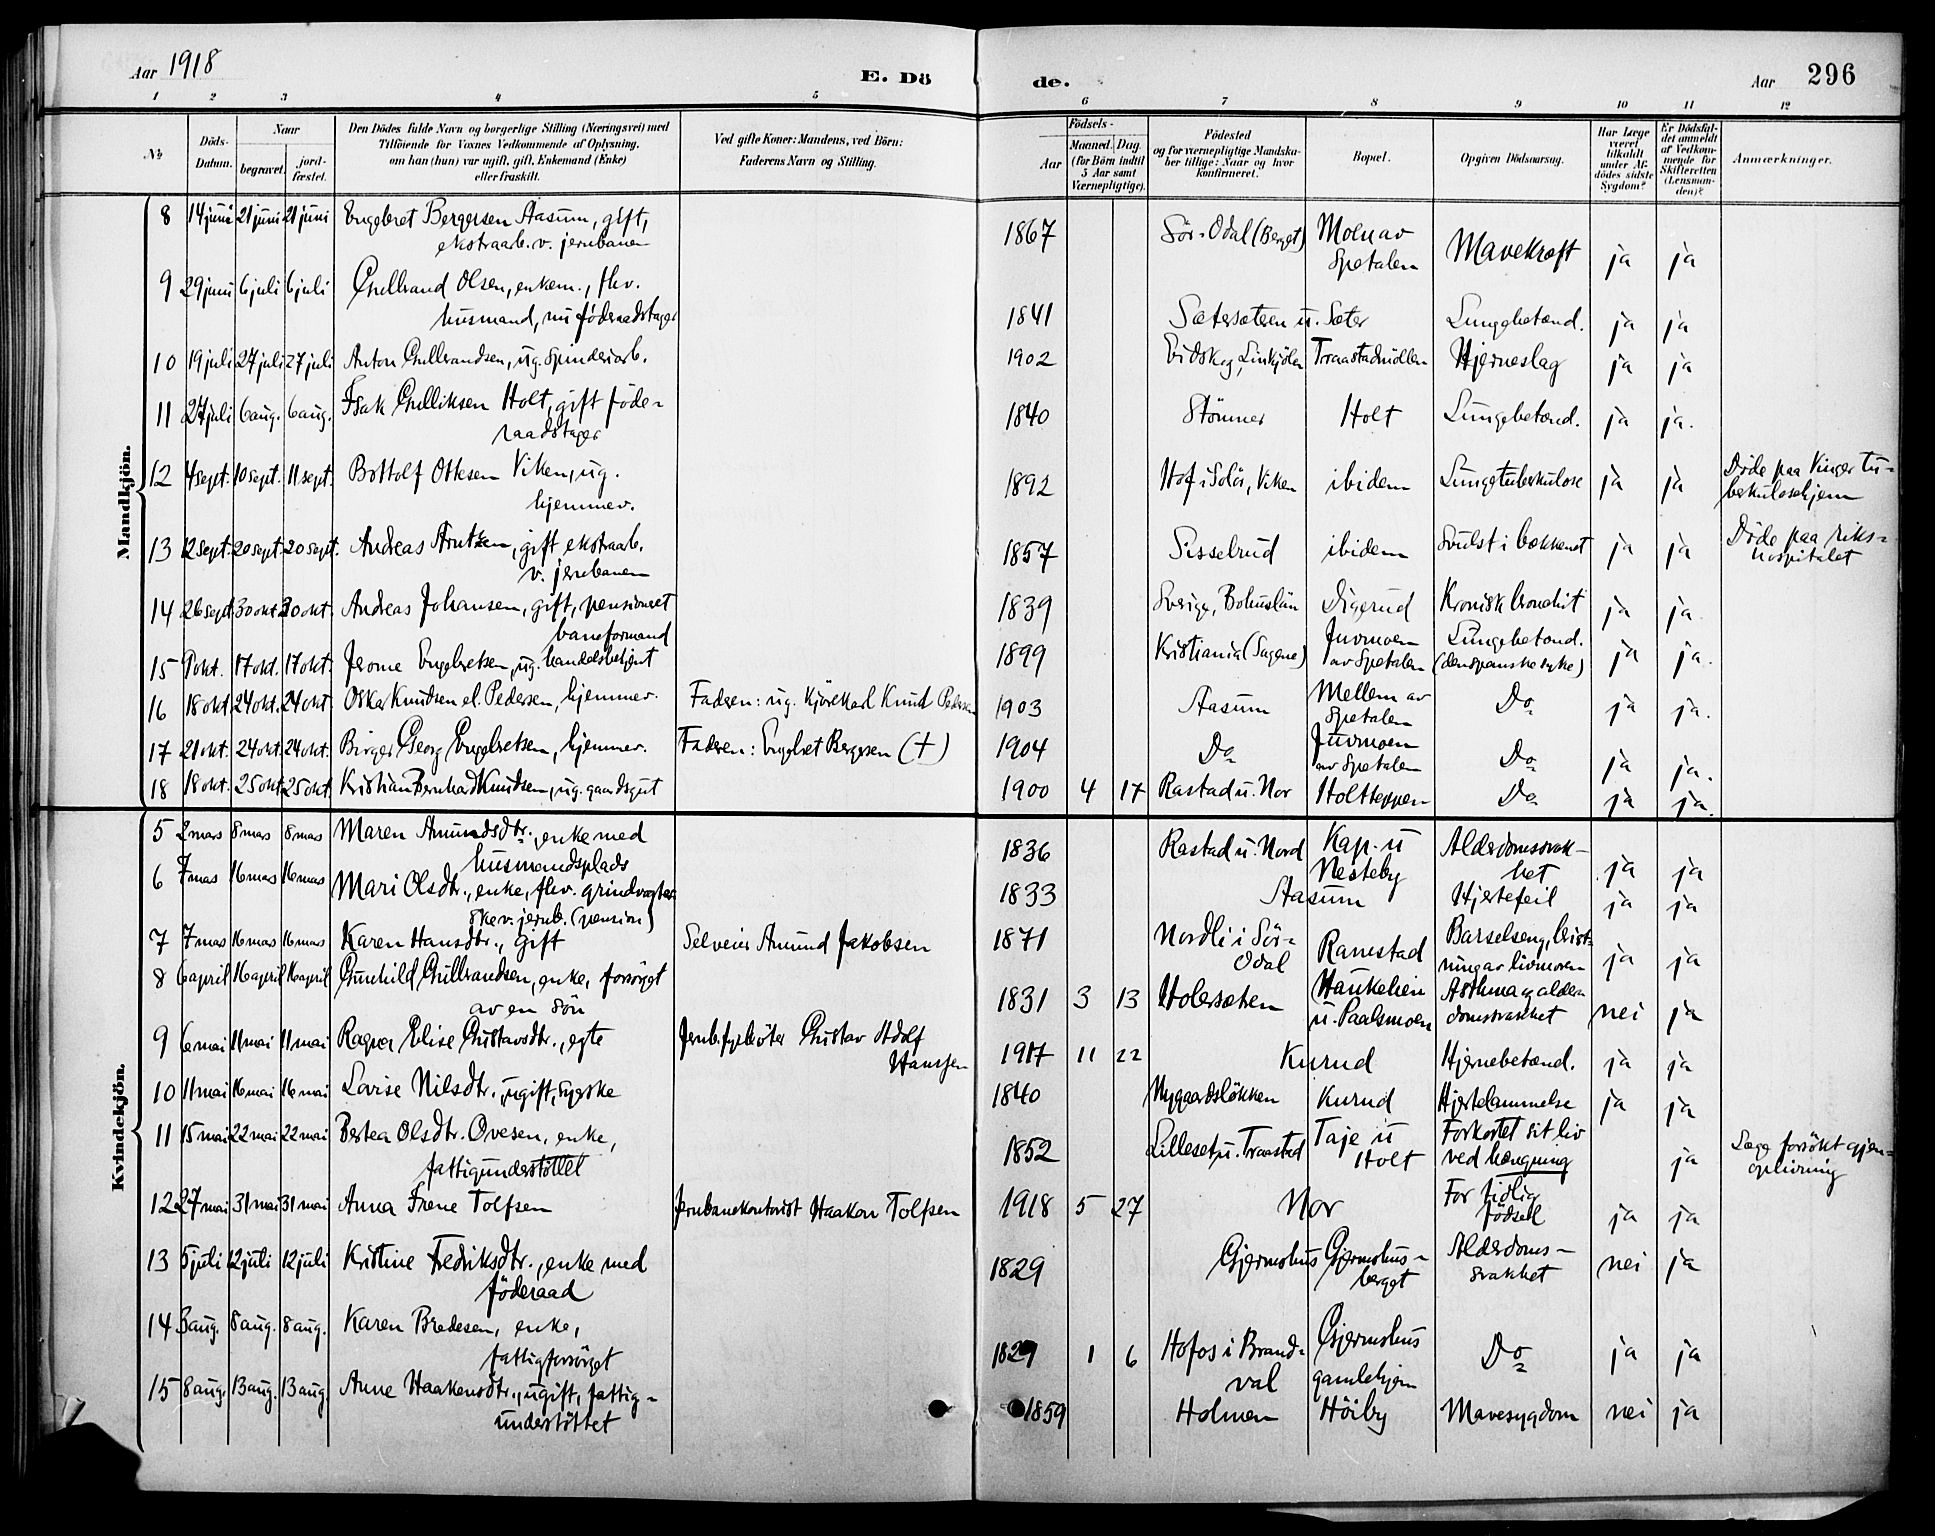 Aar 1918
E. Dö
de.
Aar
296
1 2 3 4 5 6 7 8 9 10 11 12
№
Döds-Datum.
Naar
begravet.
jord-fæstet.
Den Dödes fulde Navn og borgerlige Stilling (Næringsvei) med
Tilföiende for Voxnes Vedkommende af Oplysning,
om han (hun) var ugift, gift, Enkemand (Enke)
eller fraskilt.
Ved gifte Koner: Mandens, ved Börn:
Faderens Navn og Stilling.
Födsels-
Aar
Maaned. Dag
(for Börn indtil
5 Aar samt
Værnepligtige).
Födested
og for værnepligtige Mandska-
ber tillige: Naar og hvor
konfirmeret.
Bopæl.
Opgiven Dödsaarsag.
Har Læge
været
tilkaldt
under Af-
dödes sidste
Sygdom?
Er Dödsfal-
det anmeldt
af Vedkom-
mende for
Skifteretten
(Lensman-
den)?
Anmærkninger.
Mandkjön.
8 14 juni 21 juni 21 juni Engebret Bergersen Aasum, gift,
ekstraarb. v. jernbanen
1867 Sör-Odal (Berget) Moen av
Spetalen Mavekræft ja ja
9 29 juni 6 juli 6 juli Gulbrand Olsen, enkem., fhv.
husmand, nu föderaadstager
1841 Sætersæteren u. Sæter Lungebetænd. ja ja
10 19 juli 27 juli 27 juli Anton Gulbrandsen, ug. spinderiarb.
1902 Eidskog, Linkjölen Traastadmöllen Hjerneslag ja ja
11 27 juli 6 aug. 6 aug. Isak Gulliksen Holt, gift föde-
raadstager
1840 Stömner Holt Lungebetænd. ja ja.
12 4 sept. 10 sept. 11 sept. Bottolf Ottesen Viken, ug.
hjemmev.
1892 Hof i Solör, Viken ibidem Lungetuberkulose ja ja Döde paa Vinger tu-
berkulosehjem
13 12 sept. 20 sept. 20 sept. Andreas Arntzen, gift ekstraarb.
v. jernbanen
1857 Sisselrud ibidem Svulst i bækkenet ja ja Döde paa riks-
hospitalet
14 26 sept. 30 okt. 30 okt. Andreas Johansen, gift, pensioneret
baneformand
1839 Sverige, Bohuslän Digerud Kronisk bronchit ja ja
15 9 okt. 17 okt. 17 okt. Jerome Engebretsen, ug. handelsbetjent
1899 Kristiania (Sagene) Juvmoen
av Spetalen Lungebetænd.
(den spanske syke) ja ja.
16 18 okt. 24 okt. 24 okt. Oskar Knudsen el. Pedersen, hjemmev. Faderen: ug. Kjörekarl Knud Pedersen
1903 Aasum Mellem av
Spetalen Do ja ja.
17 21 okt. 24 okt. 24 okt. Birger Georg Engebretsen, hjemmev. Faderen: Engebret Bergersen (+)
1904 Do Juvmoen
av Spetalen Do ja ja.
18 18 okt. 25 okt. 25 okt. Kristian Bernhard Knudsen, ug. gaardsgut
1900 4 17 Rastad u. Nor Holtteppen Do ja ja.
Kvindekjön.
5 2 mars 8 mars 8 mars Maren Amundsdtr., enke med
husmandsplads
1836 Rastad u. Nord Kap. u
Nesteby Alderdomssvak-
het ja ja
6 7 mas 16 mas 16 mas Mari Olsdtr., enke, fhv. grindvogter-
ske v. jernb. (pension)
1833 Aasum Hjertefeil ja ja
7 7 mas 16 mas 16 mas Karen Hansdtr., gift Selveier Amund Jakobsen
1871 Nordli i Sör-
Odal Ramstad Barselseng, brist-
ning av livmoren ja ja
8 6 april 16 april 16 april Gunhild Gulbrandsen, enke, forsörget
av en sön
1831 3 13 Holersæten Haukelien
u. Paalsmoen Asthma og alder-
domssvakhet nei ja
9 6 mai 11 mai 11 mai Ragna Elise Gustavsdtr., egte Jernb.fyrböter Gustav Adolf
Hanssen
1917 11 22 Kurud Hjernebetænd. ja ja
10 11 mai 16 mai 16 mai Lovise Nilsdtr., ugift, syerske
1840 Nygaardslökken Kurud Hjertelammelse ja ja
11 15 mai 22 mai 22 mai Bertea Olsdtr. Ovesen, enke,
fattigunderstöttet
1852 Lilleset u. Traastad Taje u
Holt Forkortet sit liv
ved hængning ja Læge forsökt gjen-
oplivning
12 27 mai 31 mai 31 mai Anna Irene Tolfsen Jernbanekontorist Haakon Tolfsen
1918 5 27 Nor For tidlig
födsel ja ja
13 5 juli 12 juli 12 juli Kristine Fredriksdtr., enke med
föderaad
1829 Gjermshus Gjermshus-
berget Alderdoms-
svakhet nei ja
14 3 aug. 8 aug. 8 aug. Karen Bredesen, enke,
fattigforsörget
1829 1 6 Hofos i Brand-
val Gjermshus
gamlehjem Do ja ja
15 8 aug. 13 aug. 13 aug. Anne Haakensdtr., ugift, fattig-
understöttet
1859 Holmen Höiby Mavesygdom nei ja